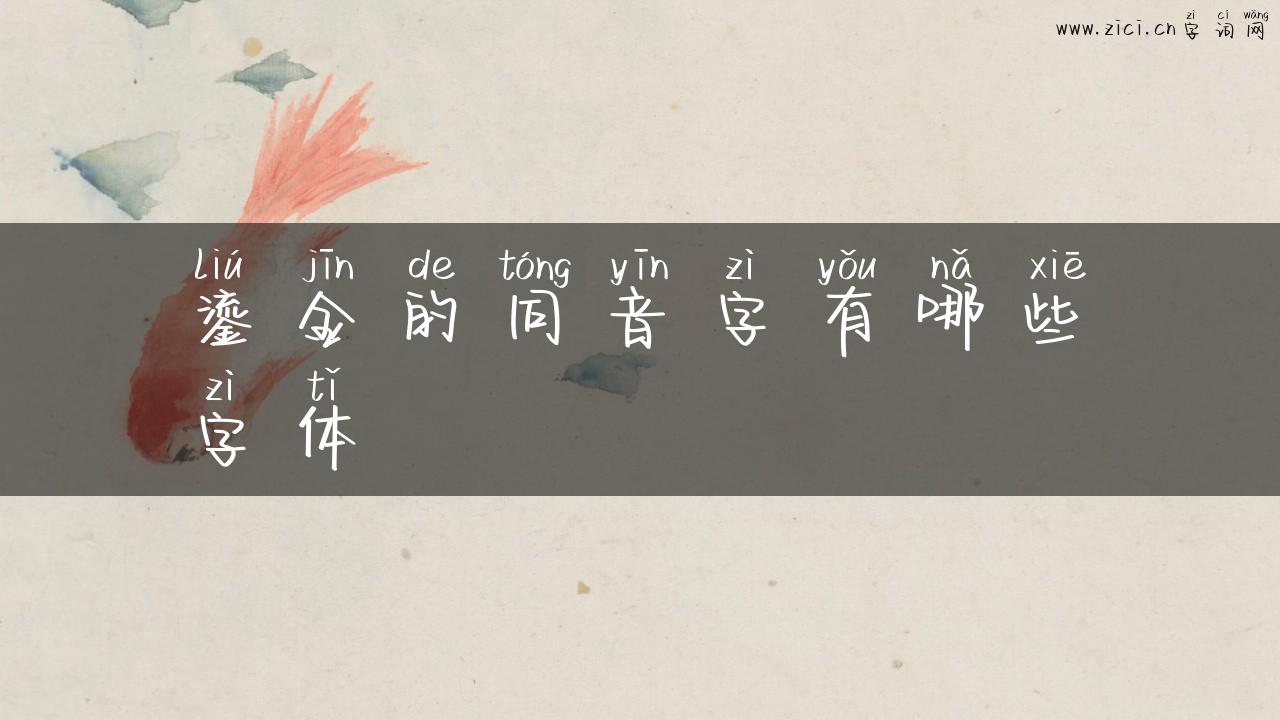 zì cí wǎng
www.zici.cn 字词网
liú jīn de tóng yīn zì yǒu nǎ xiē
鎏金的同音字有哪些
zì tǐ
字体